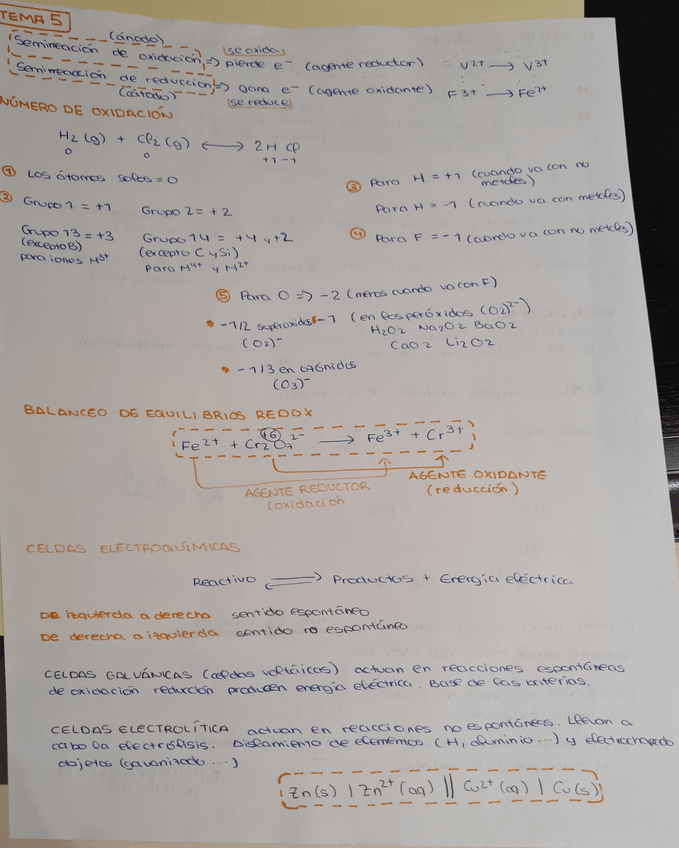 TEMA 5
(ánodo)
Semirreación de oxidación => pierde e- (agente reductor) V2+ → V3+
(se oxida)
Semirreacción de reduccion => gana e- (agente oxidante) F3+ → Fe2+
(cátodo) (se reduce)
NÚMERO DE OXIDACIÓN
H2 (g) + Cl2 (g) ⟷ 2H Cl
0 0 +1 -1
① Los átomos solos = 0
② Grupo 1 = +1 Grupo 2 = +2
Grupo 13 = +3 Grupo 14 = +4 y +2
(excepto B) (excepto C y Si)
para iones M3+ Para M4+ y M2+
③ Para H = +1 (cuando va con no
metales)
Para H = -1 (cuando va con metales)
④ Para F = -1 (cuando va con no metales)
⑤ Para O => -2 (menos cuando va con F)
-1/2 superoxidos -1 (en los peróxidos (O2)2-)
(O2)- H2O2 Na2O2 BaO2
CaO2 Li2O2
-1/3 en ozónidos
(O3)-
BALANCEO DE EQUILIBRIOS REDOX
+6
Fe2+ + Cr2O7 2- → Fe3+ + Cr3+
AGENTE REDUCTOR
(oxidación
AGENTE OXIDANTE
(reducción)
CELDAS ELECTROQUÍMICAS
Reactivo ⇌ Productos + Energía eléctrica
DE izquierda a derecha sentido espontáneo
DE derecha a izquierda sentido no espontáneo
CELDAS GALVÁNICAS (celdas voltáicas) actuan en reacciones espontáneas
de oxidación reducción producen energía eléctrica. Base de las baterías.
CELDAS ELECTROLÍTICA actuan en reacciones no espontáneas. Llevan a
cabo la electrólisis. Aislamiento de elementos (H, aluminio ...) y electrochapado
objetos (galvanizado ...)
Zn(s) | Zn2+ (aq) || Cu2+ (aq) | Cu(s)